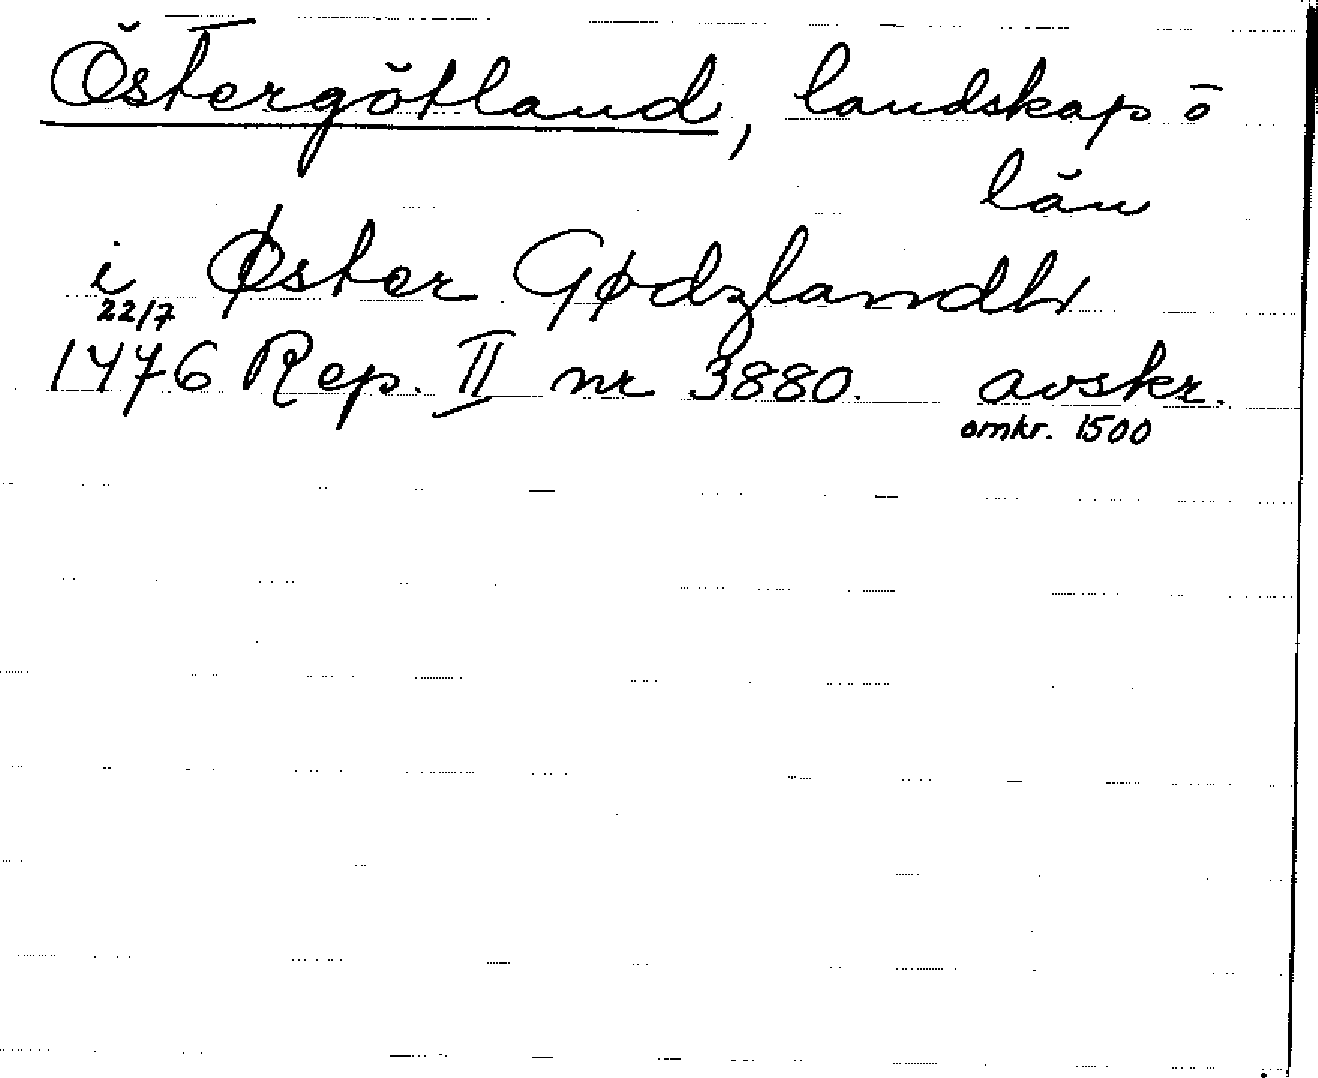 Östergötland, landskap o
län
i Øster Gødzlandh
22/7
1476 Rep. II nr 3880. avskr.
omkr. 1500